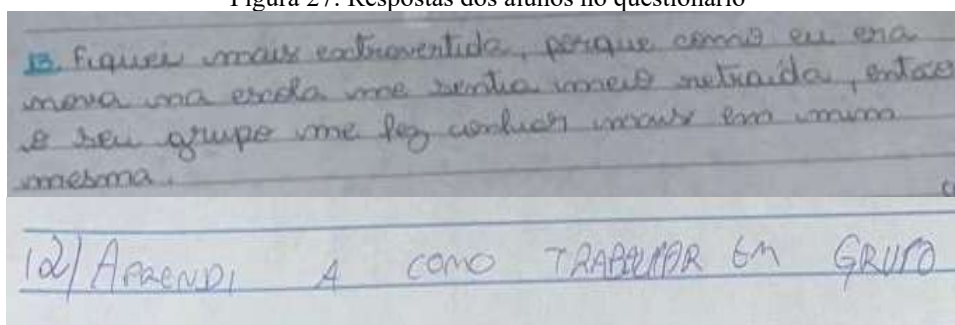 Figura 27: Respostas dos alunos no questionário
13. Fiquei mais extrovertida, porque como eu era
nova na escola me sentia meio retraída, então
o seu grupo me fez confiar mais em mim
mesma.
12) APRENDI A COMO TRABALHAR EM GRUPO